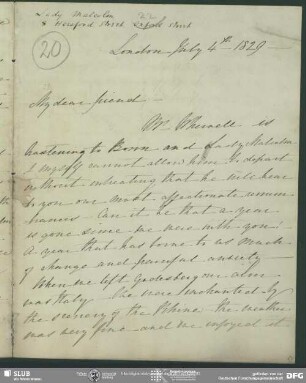 Lady Malcolm
Hereford Street
20
London July 4th 1829
My dear friend —
Mr Whewell is
hastening to Bonn and Lady Malcolm
& myself cannot allow him to depart
without entreating that he will have
to you our most affectionate remem-
brances. Can it be that a year
is gone since we were with you!
a year that has borne to us much
of change and painful anxiety —
When we left Godesberg on
was Italy. We were enchanted by
the scenery of the Rhine. The weather
was very fine and we enjoyed it
SLUB
Wir führen Wissen.
DFG